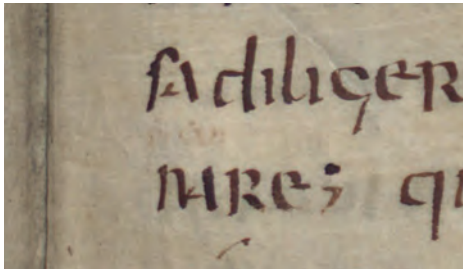 sa diliger
nare; qu